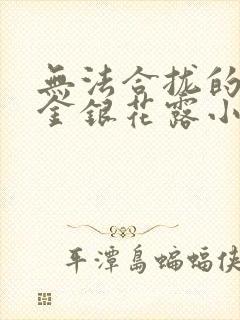 無法合拢的
金銀花露小
平潭島蝙蝠侠